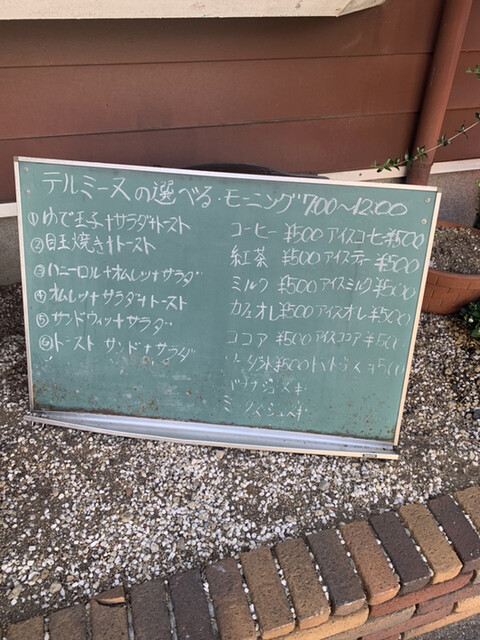 テルミーヌの選べる・モーニング7:00〜12:00
①ゆで玉子+サラダ+トースト
②目玉焼き+トースト
③ハニーロル+オムレツ+サラダ
④オムレツ+サラダ+トースト
⑤サンドウィッ+サラダ
⑥トースト サンド+サラダ
コーヒー ¥500 アイスコーヒ ¥500
紅茶 ¥500 アイスティー ¥500
ミルク ¥500 アイスミルク ¥500
カフェオレ ¥500 アイスオレ ¥500
ココア ¥500 アイスココア ¥500
¥500 ¥500